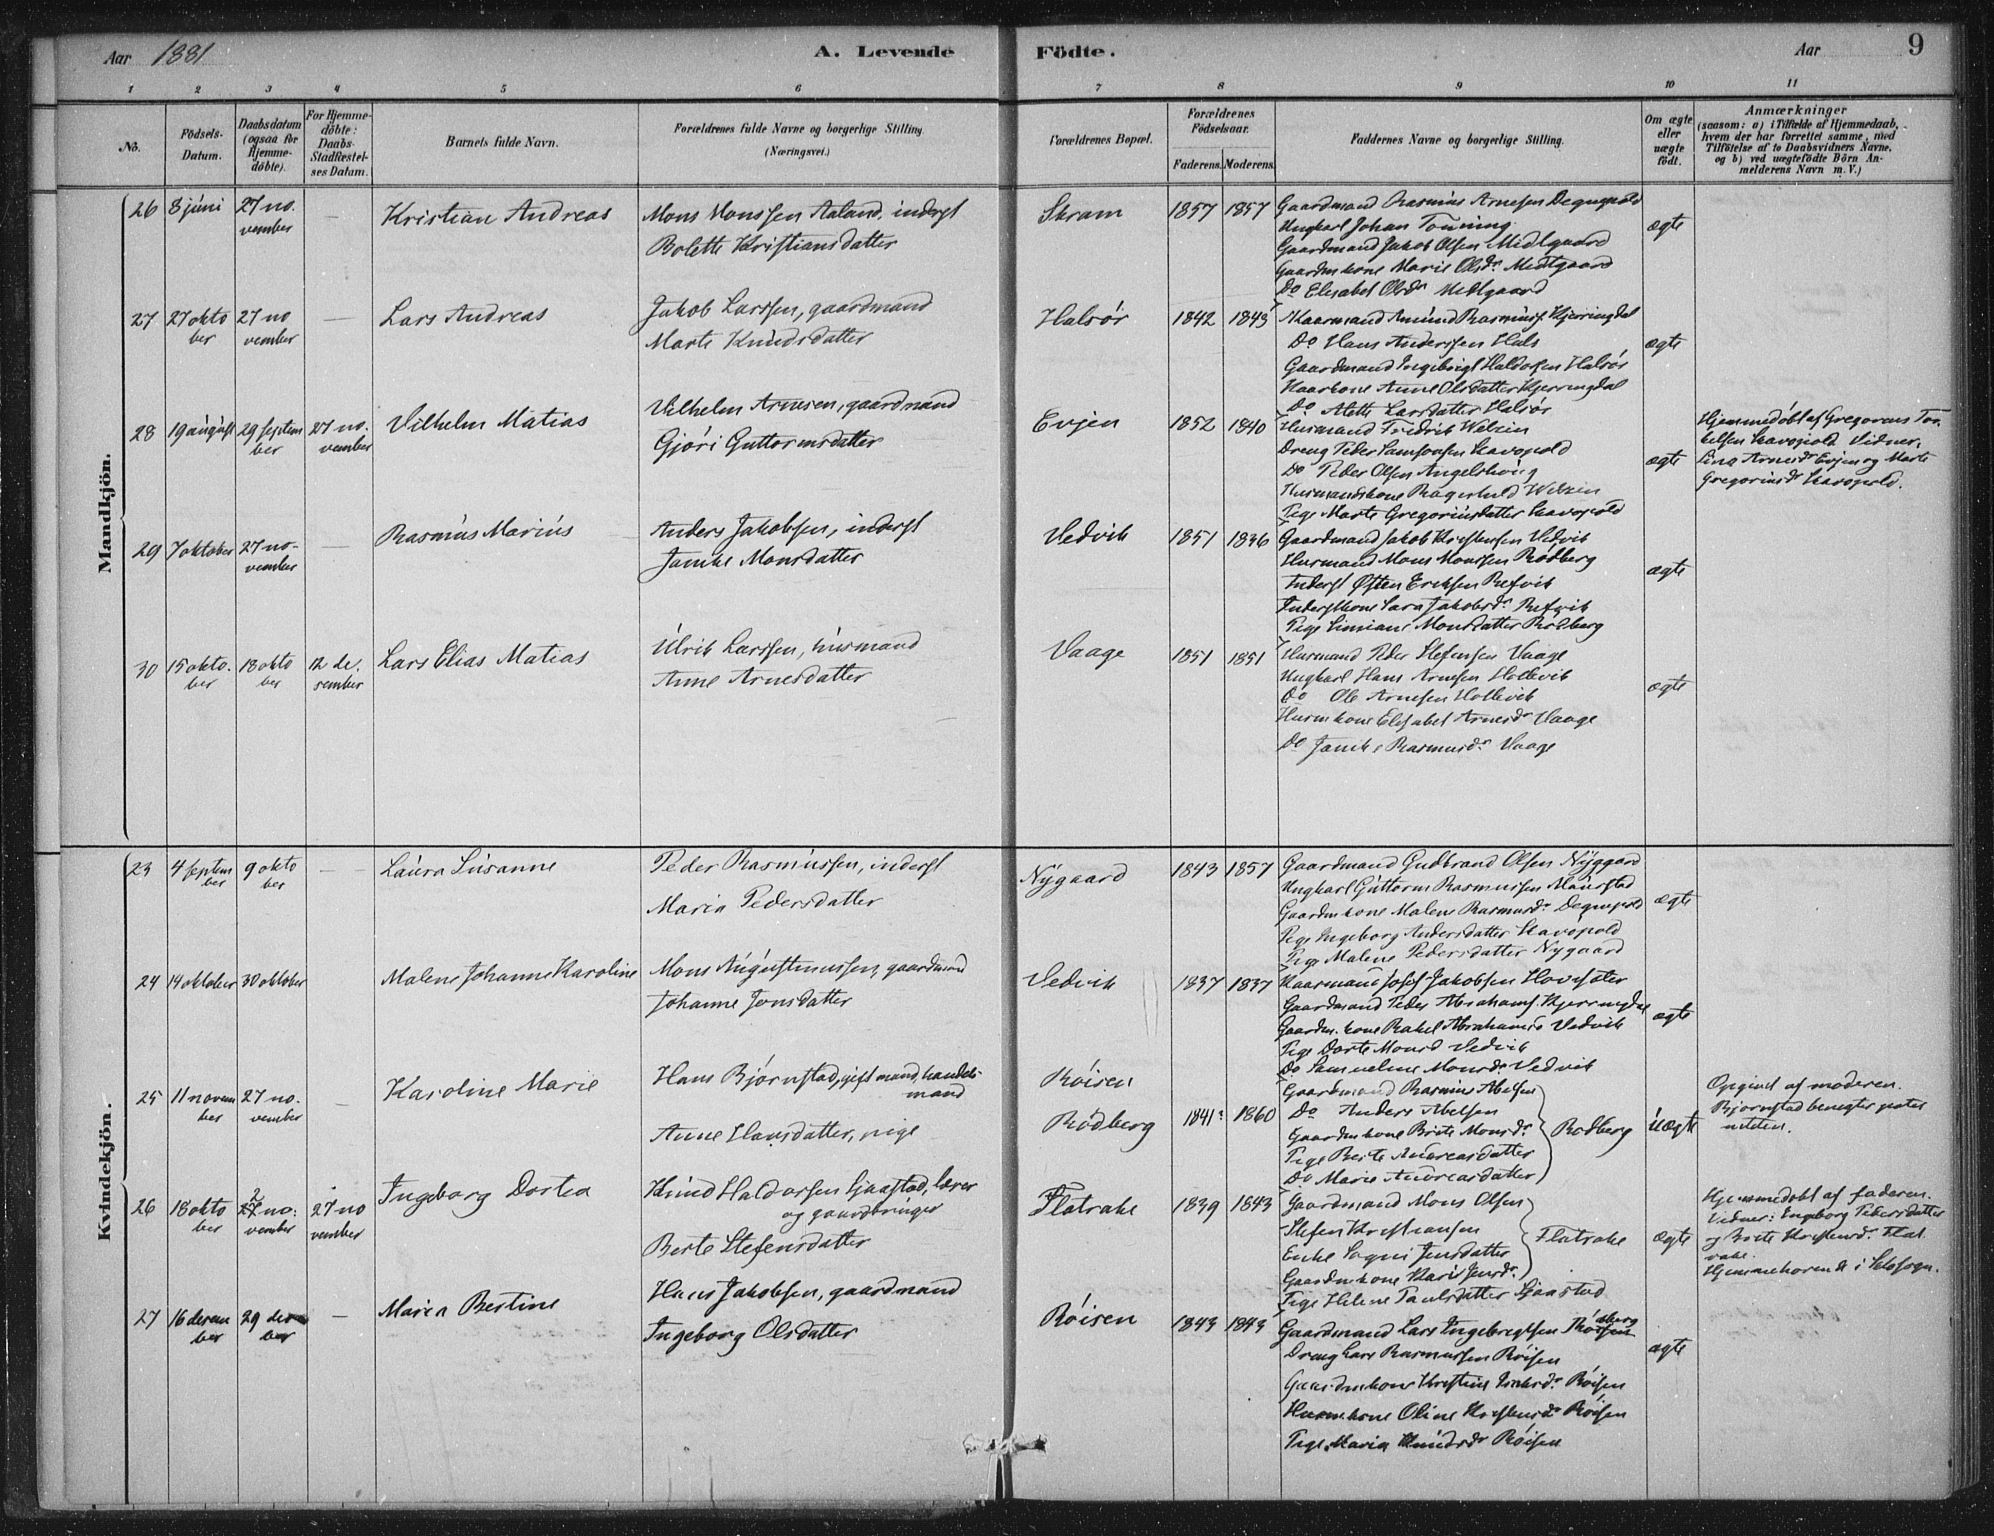 Aar 1881
A. Levende Födte.
Aar
9
1 2 3 4 5 6 7 8 9 10 11
No.
Födsels-Datum.
Daabsdatum (ogsaa för Hjemme-döbte).
For Hjemme-döbte: Daabs-Stadfæstel-ses Datum.
Barnets fulde Navn.
Forældrenes fulde Navne og borgerlige Stilling.
(Næringsvei.)
Forældrenes Bopæl.
Forældrenes Födselsaar.
Faderens. Moderens.
Faddernes Navne og borgerlige Stilling.
Om ægte eller uægte födt.
Anmærkninger
(saasom: a) i Tilfælde af Hjemmedaab, hvem der har forrettet samme, med Tilföielse af to Daabsvidners Navne, og b) ved uægtefödte Börn An-melderens Navn m.V.)
Mandkjön.
26 8 juni 27 no. vember — Kristian Andreas
Mons Monssen Aaland, inderst
Bolette Kristiansdatter
Skram 1857 1857
Gaardmand Rasmus Arnesen Degnepold
Ungkarl Johan Tonning
Gaardmand Jakob Olsen Midtgaard
Gaardmkone Marie Olsdr Midtgaard
Do Elisabet Olsdr Midtgaard
ægte
27 27 okto ber 27 no vember — Lars Andreas
Jakob Larssen, gaardmand
Marte Knudsdatter
Halsør 1842 1843
Kaarmand Amund Rasmuss. Kjerringdal
Do Hans Anderssen Hals
Gaardmand Ingebrigt Haldorsen Halsør
Kaarkone Anne Olsdatter Kjerringdal
Do Alette Larsdatter Halsør
ægte
28 19 august 29 septem ber 27 no. vember Vilhelm Matias
Vilhelm Arnesen, gaardmand
Gjøri Guttormsdatter
Evjen 1852 1840
Husmand Fredrik Welzin
Dreng Peder Samsonsen Skavøpold
Do Peder Olsen Angelshoug
Husmandskone Ragnhild Welzin
Pige Marte Gregoriusdatter Skavøpold
ægte
Hjemmedøbt af Gregorius Tor-
kelsen Skavøpold Vidner:
Lina Arnesdr Evjen og Marte
Gregoriusdr Skavøpold.
29 7 oktober 27 no- vember — Rasmus Marius
Anders Jakobsen, inderst
Janike Monsdatter
Vedvik 1851 1836
Gaardmand Jakob Kristensen Vedvik
Husmand Mons Monssen Rødberg
Inderst Østen Eriksen Refvik
Inderstkone Sara Jakobsdr Refvik
Pige Simiane Monsdatter Rødberg
ægte
30 15 okto. ber 18 okto ber 12 de. sember Lars Elias Matias
Ulrik Larssen, husmand
Anne Arnesdatter
Vaage 1851 1851
Husmand Peder Stefensen Vaage
Ungkarl Hans Arnesen Hollevik
Do Ole Arnesen Hollevik
Husmkone Elisabet Arnesdr Vaage
Do Janike Rasmusdr Vaage
ægte
Kvindekjön.
23 4 septem ber 9 okto ber — Laura Susanne
Peder Rasmussen, inderst
Maria Pedersdatter
Nygaard 1843 1857
Gaardmand Gudbrand Olsen Nygaard
Ungkarl Guttorm Rasmussen Maurstad
Gaardmkone Malene Rasmusdr Degnepold
Pige Ingeborg Andersdatter Skavøpold
Pige Malene Pedersdatter Nygaard
ægte
24 14 oktober 30 oktober Malene Johanne Karoline
Mons Augustinussen, gaardmand
Johanne Jonsdatter
Vedvik 1837 1837
Kaarmand Josef Jakobsen Hovesæter
Gaardmand Peder Abrahams. Kjerringdal
Gaardm.kone Rakel Abrahamsd Vedvik
Pige Dorte Monsd Vedvik
Do Samueline Monsdr Vedvik
ægte
25 11 novem ber 27 no. vember — Karoline Marie
Hans Bjørnstad, gift mand, handels-
mand
Anne Hansdatter, pige
Røisen
Rødberg 1841: 1860
Gaardmand Rasmus Abelsen
Do Anders Abelsen
Gaardmkone Brite Monsdr
Pige Berte Andreasdatter
Do Marie Andreasdatter
Rødberg
uægte
Opgivet af moderen.
Bjørnstad benegter pater
niteten.
26 18 okto ber 2 no: vember 27 no vember Ingeborg Dortea
Knud Haldorsen Sjaastad, lærer
og gaardbruger
Berte Stefensdatter
Flatrake 1839 1843
Gaardmand Mons Olsen
Stefen Kristiansen
Enke Sogni Jensdatter
Gaardmkone Kari Jensdr
Flatrake
Pige Helene Paulsdatter Sjaastad
ægte
Hjemmedøbt af faderen.
Vidner: Engeborg Pedersdatter
og Brite Kristensdr Flat
rake.
Hjemmehørende i Selø sogn.
27 16 decem ber 29 decem ber — Maria Bertine
Hans Jakobsen, gaardmand
Ingeborg Olsdatter
Røisen 1843 1843
Gaardmand Lars Ingebrigtsen Rødberg
Dreng Lars Rasmussen Røisen
Gaardmkone Kristine Isaksdr Røisen
Husm.kone Oline Kristensdr Røisen
Pige Maria Knudsdr Røisen
ægte